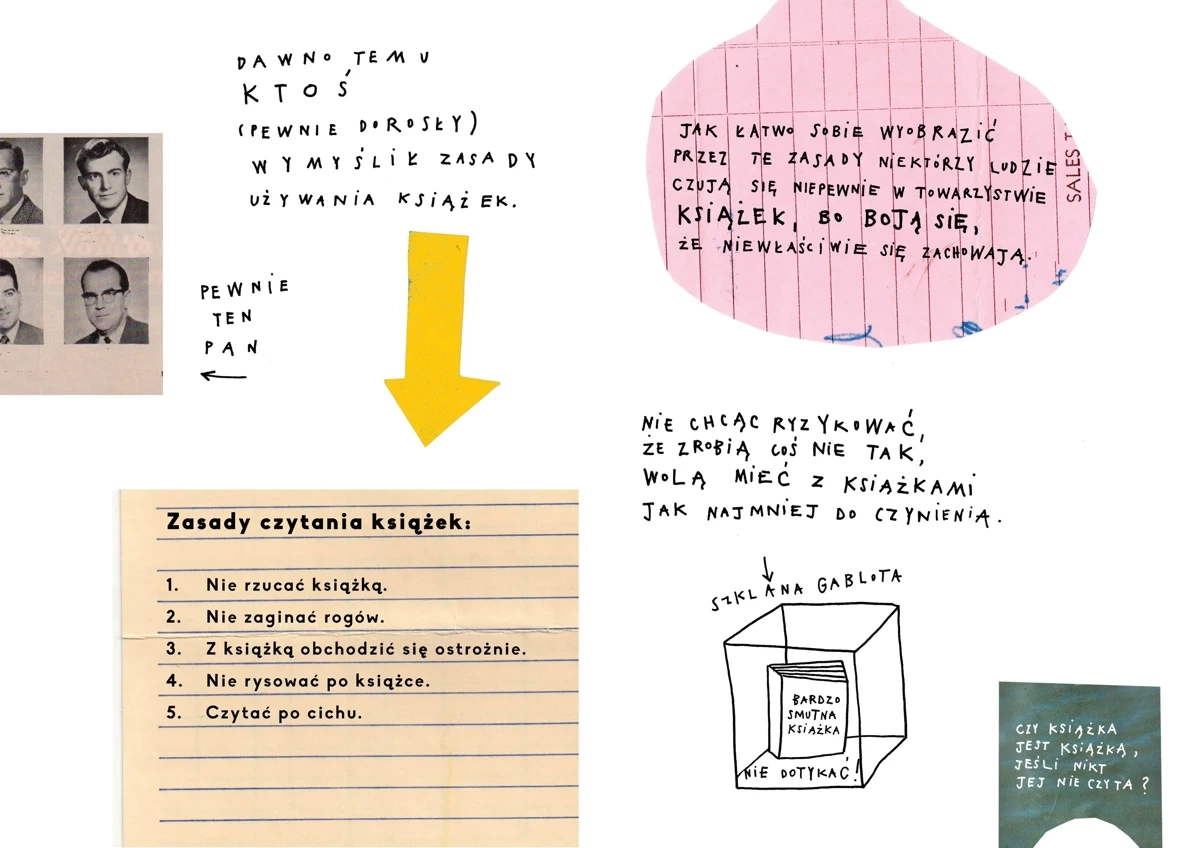 DAWNO TEMU
KTOŚ
(PEWNIE DOROSŁY)
WYMYŚLIŁ ZASADY
UŻYWANIA KSIĄŻEK.
PEWNIE
TEN
PAN
Zasady czytania książek:
1. Nie rzucać książką.
2. Nie zaginać rogów.
3. Z książką obchodzić się ostrożnie.
4. Nie rysować po książce.
5. Czytać po cichu.
JAK ŁATWO SOBIE WYOBRAZIĆ
PRZEZ TE ZASADY NIEKTÓRZY LUDZIE
CZUJĄ SIĘ NIEPEWNIE W TOWARZYSTWIE
KSIĄŻEK, BO BOJĄ SIĘ,
ŻE NIEWŁAŚCIWIE SIĘ ZACHOWAJĄ.
SALES T
NIE CHCĄC RYZYKOWAĆ,
ŻE ZROBIĄ COŚ NIE TAK,
WOLĄ MIEĆ Z KSIĄŻKAMI
JAK NAJMNIEJ DO CZYNIENIA.
SZKLANA GABLOTA
BARDZO
SMUTNA
KSIĄŻKA
NIE DOTYKAĆ!
CZY KSIĄŻKA
JEST KSIĄŻKĄ,
JEŚLI NIKT
JEJ NIE CZYTA?